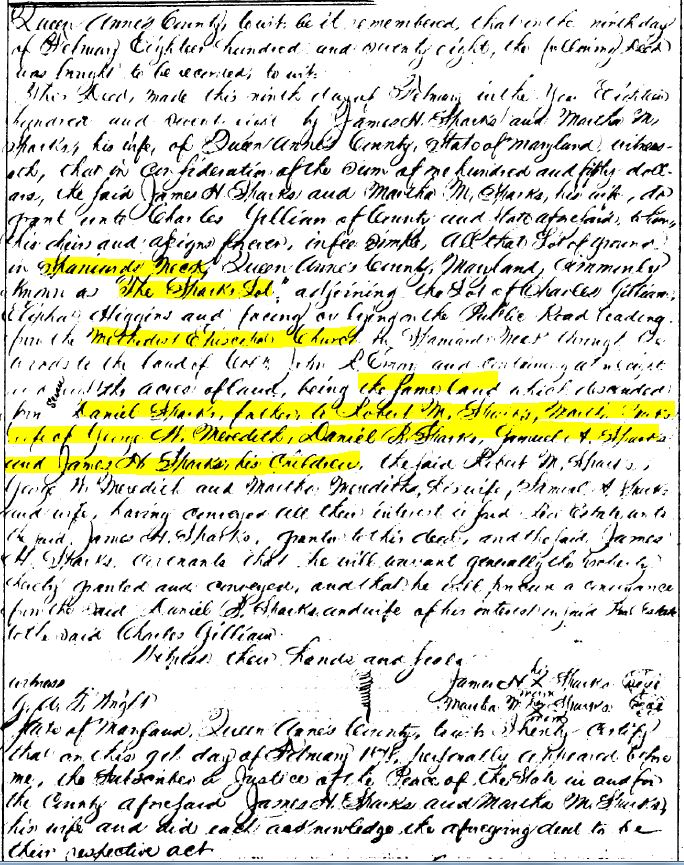 Queen Anne's County, to wit: be it remembered, that on the ninth day
of February Eighteen hundred and seventy eight, the following Deed
was brought to be recorded, to wit:
This Deed, made this ninth day of February in the Year Eighteen
hundred and seventy eight by James H. Sparks and Martha M.
Sparks, his wife, of Queen Anne's County, State of Maryland, witness-
eth, that in consideration of the sum of one hundred and fifty doll-
ars, the said James H Sparks and Martha M. Sparks, his wife, do
grant unto Charles Gillian of County and State aforesaid, to him,
his heirs and assigns forever, in fee simple, All that Lot of ground
in Spaniards Neck, Queen Anne's County, Maryland, commonly
known as "The Sparks Lot," adjoining the Lot of Charles Gillian,
Higgins and facing or lying on the Public Road leading
from the Methodist Episcopal Church in Spaniards Neck through the
woods to the land of John and containing at
seven acres of land, being the same land which descended
from Daniel Sparks, father to Robert M. Sparks, Martha
wife of George W. Meredith, Daniel R. Sparks, Samuel A. Sparks
and James H Sparks, his Children, the said Robert M. Sparks,
George W. Meredith and Martha Meredith, his wife, Samuel A. Sparks
and wife, having conveyed all their interest in said Real Estate unto
the said James H. Sparks, grantor to this deed, and the said James
H. Sparks covenants that he will warrant generally the property
hereby granted and conveyed, and that he will procure a conveyance
from the said Daniel Sparks and wife of his interest in said Real Estate
to the said Charles Gillian.
Witness their hands and seals
witness James H. X Sparks Seal
Wright Martha M. X Sparks Seal
State of Maryland, Queen Anne's County, to wit: I hereby certify
that on this 9th day of February 1878, personally appeared before
me, the Subscriber a Justice of the Peace of the State in and for
the County aforesaid James H. Sparks and Martha M. Sparks,
his wife and did each acknowledge the aforegoing deed to be
their respective act